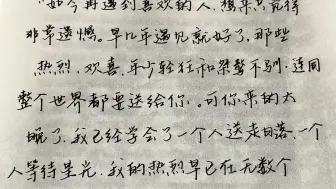 “如今再遇到喜欢的人，想来只觉得
非常遗憾。早几年遇见就好了，那些
热烈、欢喜、年少轻狂和桀骜不驯，连同
整个世界都要送给你。可你来的太
晚了，我已经学会了一个人送走日落，一个
人等待星光，我的热烈早已在无数个